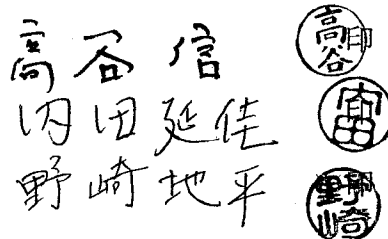 高谷 信
内田延佳
野崎地平
高谷印
内田
野崎